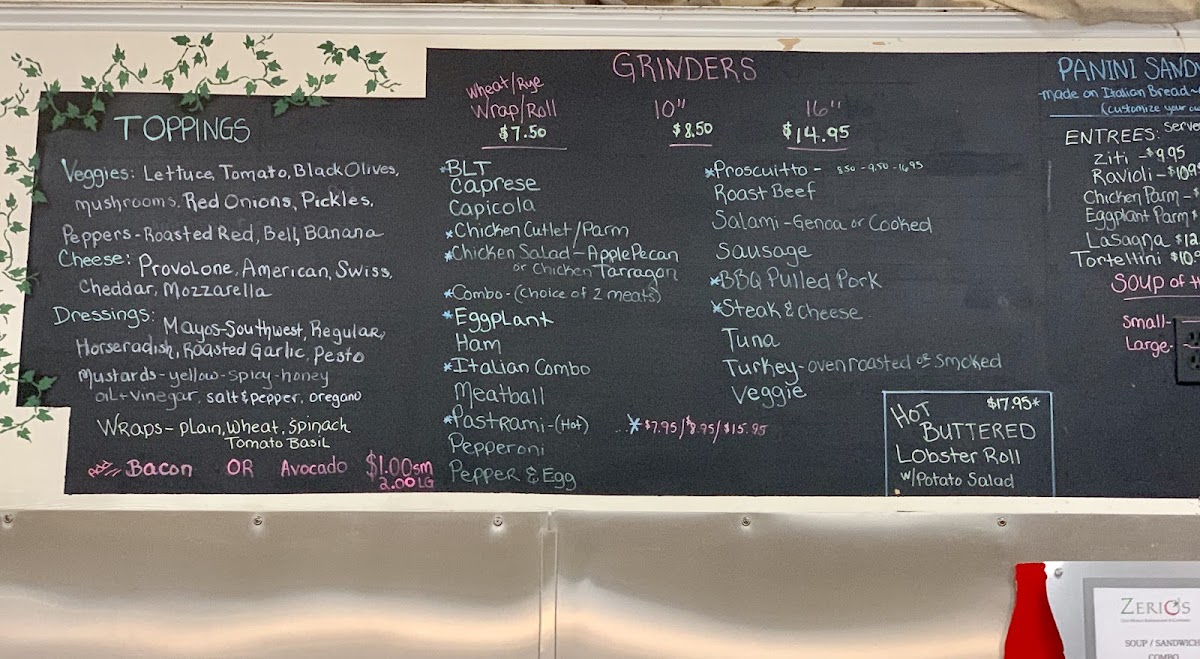 TOPPINGS
Veggies: Lettuce, Tomato, Black Olives,
mushrooms, Red Onions, Pickles,
Peppers-Roasted Red, Bell, Banana
Cheese: Provolone, American, Swiss,
Cheddar, Mozzarella
Dressings: Mayos-Southwest, Regular,
Horseradish, Roasted Garlic, Pesto
Mustards-yellow-spicy-honey
oil+vinegar, salt & pepper, oregano
Wraps- plain, wheat, spinach
Tomato Basil
Add Bacon OR Avocado $1.00 sm
2.00 LG
GRINDERS
Wheat/Rye
Wrap/Roll
$7.50
10"
$8.50
16"
$14.95
*BLT
Caprese
Capicola
*Chicken Cutlet/Parm
*Chicken Salad-Apple Pecan
or Chicken Tarragon
*Combo-(Choice of 2 meats)
*Eggplant
Ham
*Italian Combo
Meatball
*Pastrami-(Hot)
Pepperoni
Pepper & Egg
*Proscuitto - 8.50 - 9.50 - 16.95
Roast Beef
Salami-Genoa or Cooked
Sausage
*BBQ Pulled Pork
*Steak & Cheese
Tuna
Turkey-oven roasted or Smoked
Veggie
*$7.95/$8.95/$15.95
$17.95*
HOT
BUTTERED
Lobster Roll
w/Potato Salad
PANINI SAND
made on Italian Bread
(customize your
ENTREES: Serve
Ziti - $9.95
Ravioli - $10.9
Chicken Parm - $
Eggplant Parm
Lasagna $12
Tortellini $10.9
SOUP of t
Small-
Large-
ZERIO'S
SOUP / SANDWICH
COMBO